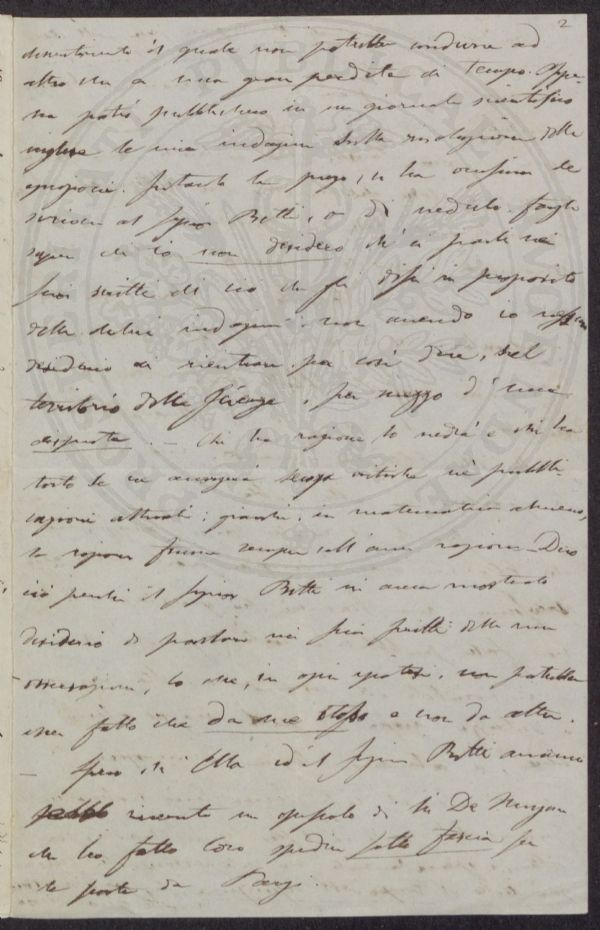 2
il quale non potrebbe condurre ad
altro che a una gran perdita di tempo. Appe-
na potrò pubblicherò in un giornale scientifico
inglese le mie indagini sulla risoluzione delle
equazioni. Intanto la prego, se ha occasione di
scrivere al Signor Betti, o di vederlo, fargli
saper che io non desidero ch'ei parli nei
suoi scritti di ciò che gli dissi in proposito
delle dette indagini, non avendo io nessun
desiderio di rientrare, per così dire, nel
territorio delle Scienze, per mezzo d'una
disputa. — Chi ha ragione lo vedrà e chi ha
torto se ne accorgerà senza critiche nè pubbli
cazioni attuali; giacchè, in matematica almeno,
la ragione finisce sempre coll'aver ragione. Dico
ciò perchè il Signor Betti mi aveva mostrato
desiderio di parlare nei suoi scritti delle mie
osservazioni, lo che, in ogni ipotesi, non potrebbe
esser fatto che da me stesso e non da altri.
— Spero ch'Ella ed il Signor Betti avranno
ricevuto un opuscolo di De Morgan
che ho fatto loro spedire sotto fascia per
la posta da Parigi.